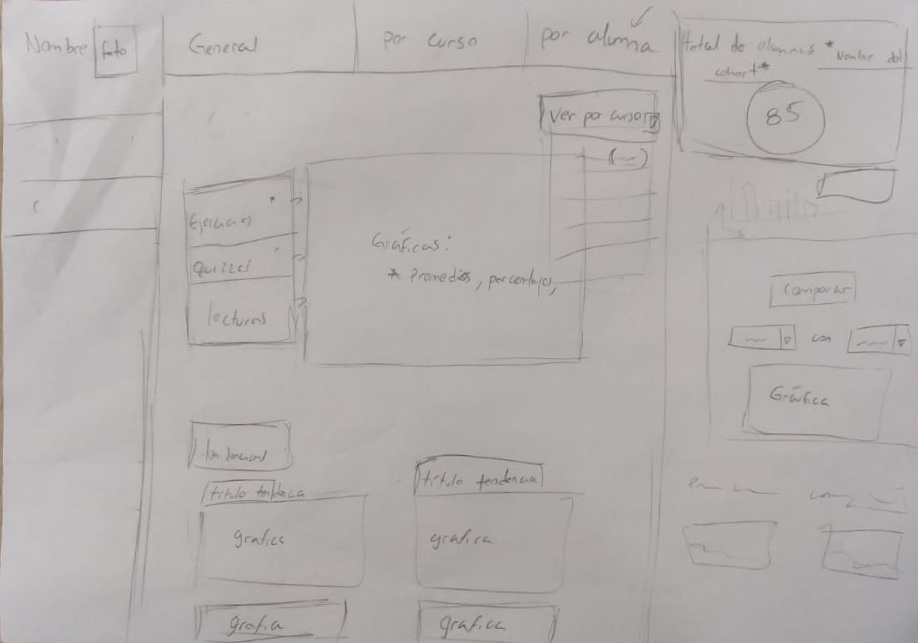 Nombre
foto
General
por curso
por alumna
total de alumnas *Nombre del
cohort*
85
Ver por curso
Ejercicios
Quizzes
lecturas
Gráficas:
* Promedios, porcentajes,
Comparar
con
Gráfica
tendencias
titulo tendencia
grafica
titulo tendencia
grafica
grafia
grafica